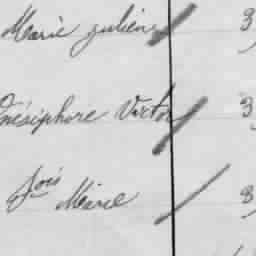 Marie julien 3
nésiphore Victor 3
fois Marie 3